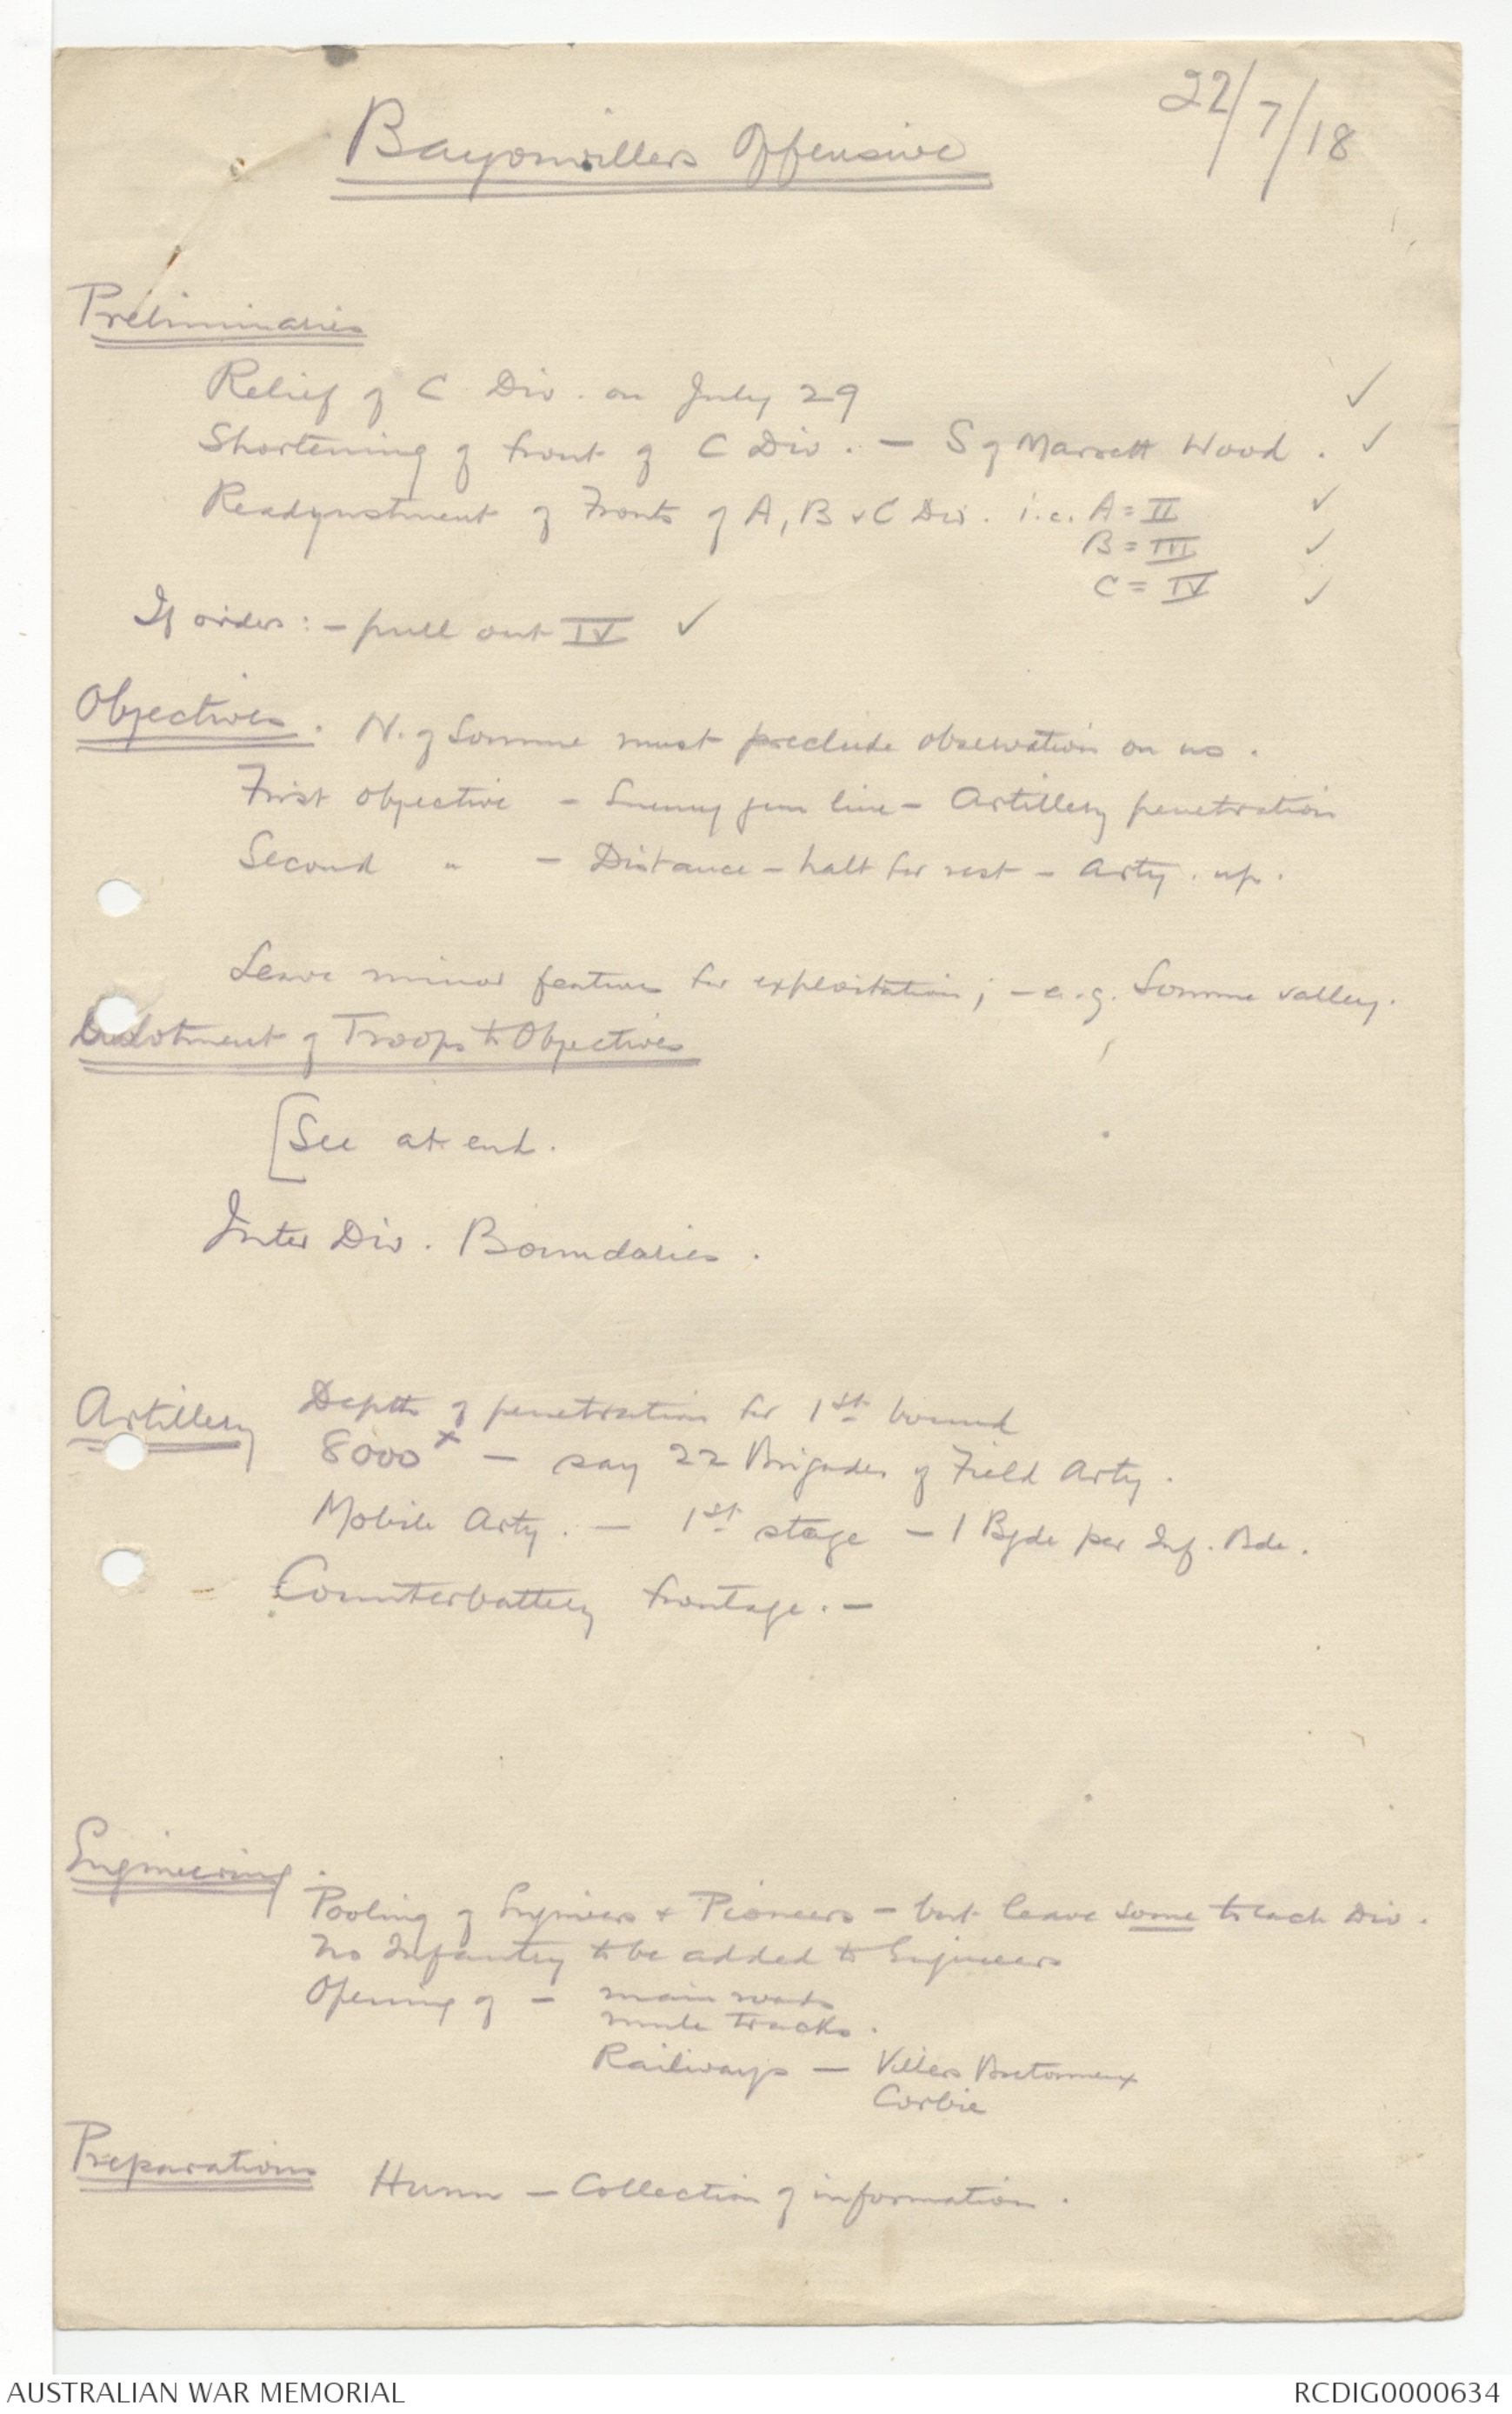 22/7/18
Bayonvillers Offensive
Preliminaries
Relief of C Div. on July 29 ✓
Shortening of front of C Div. - S of Marrett Wood. ✓
Readjustment of Fronts of A, B & C Div. i.e. A = II ✓
B = III ✓
C = IV ✓
If orders: - pull out IV ✓
Objectives. N. of Somme must preclude observation on us.
First objective - Enemy gun line - Artillery penetration
Second " - Distance - halt for rest - Arty. up.
Leave minor features for exploitation; - e.g. Somme valley.
Allotment of Troops to Objectives
[See at end.
Inter Div. Boundaries.
Artillery Depth of penetration for 1st bound
8000x - say 22 Brigades of Field Arty.
Mobile Arty. - 1st stage - 1 Bgde per Inf. Bde.
Counterbattery frontage. -
Engineering.
Pooling of Engineers & Pioneers - but leave some to each Div.
No Infantry to be added to Engineers
Opening of - main roads
mule tracks.
Railways - Villers Bretonneux
Corbie
Preparations Hunn - Collection of information.
AUSTRALIAN WAR MEMORIAL
RCDIG0000634